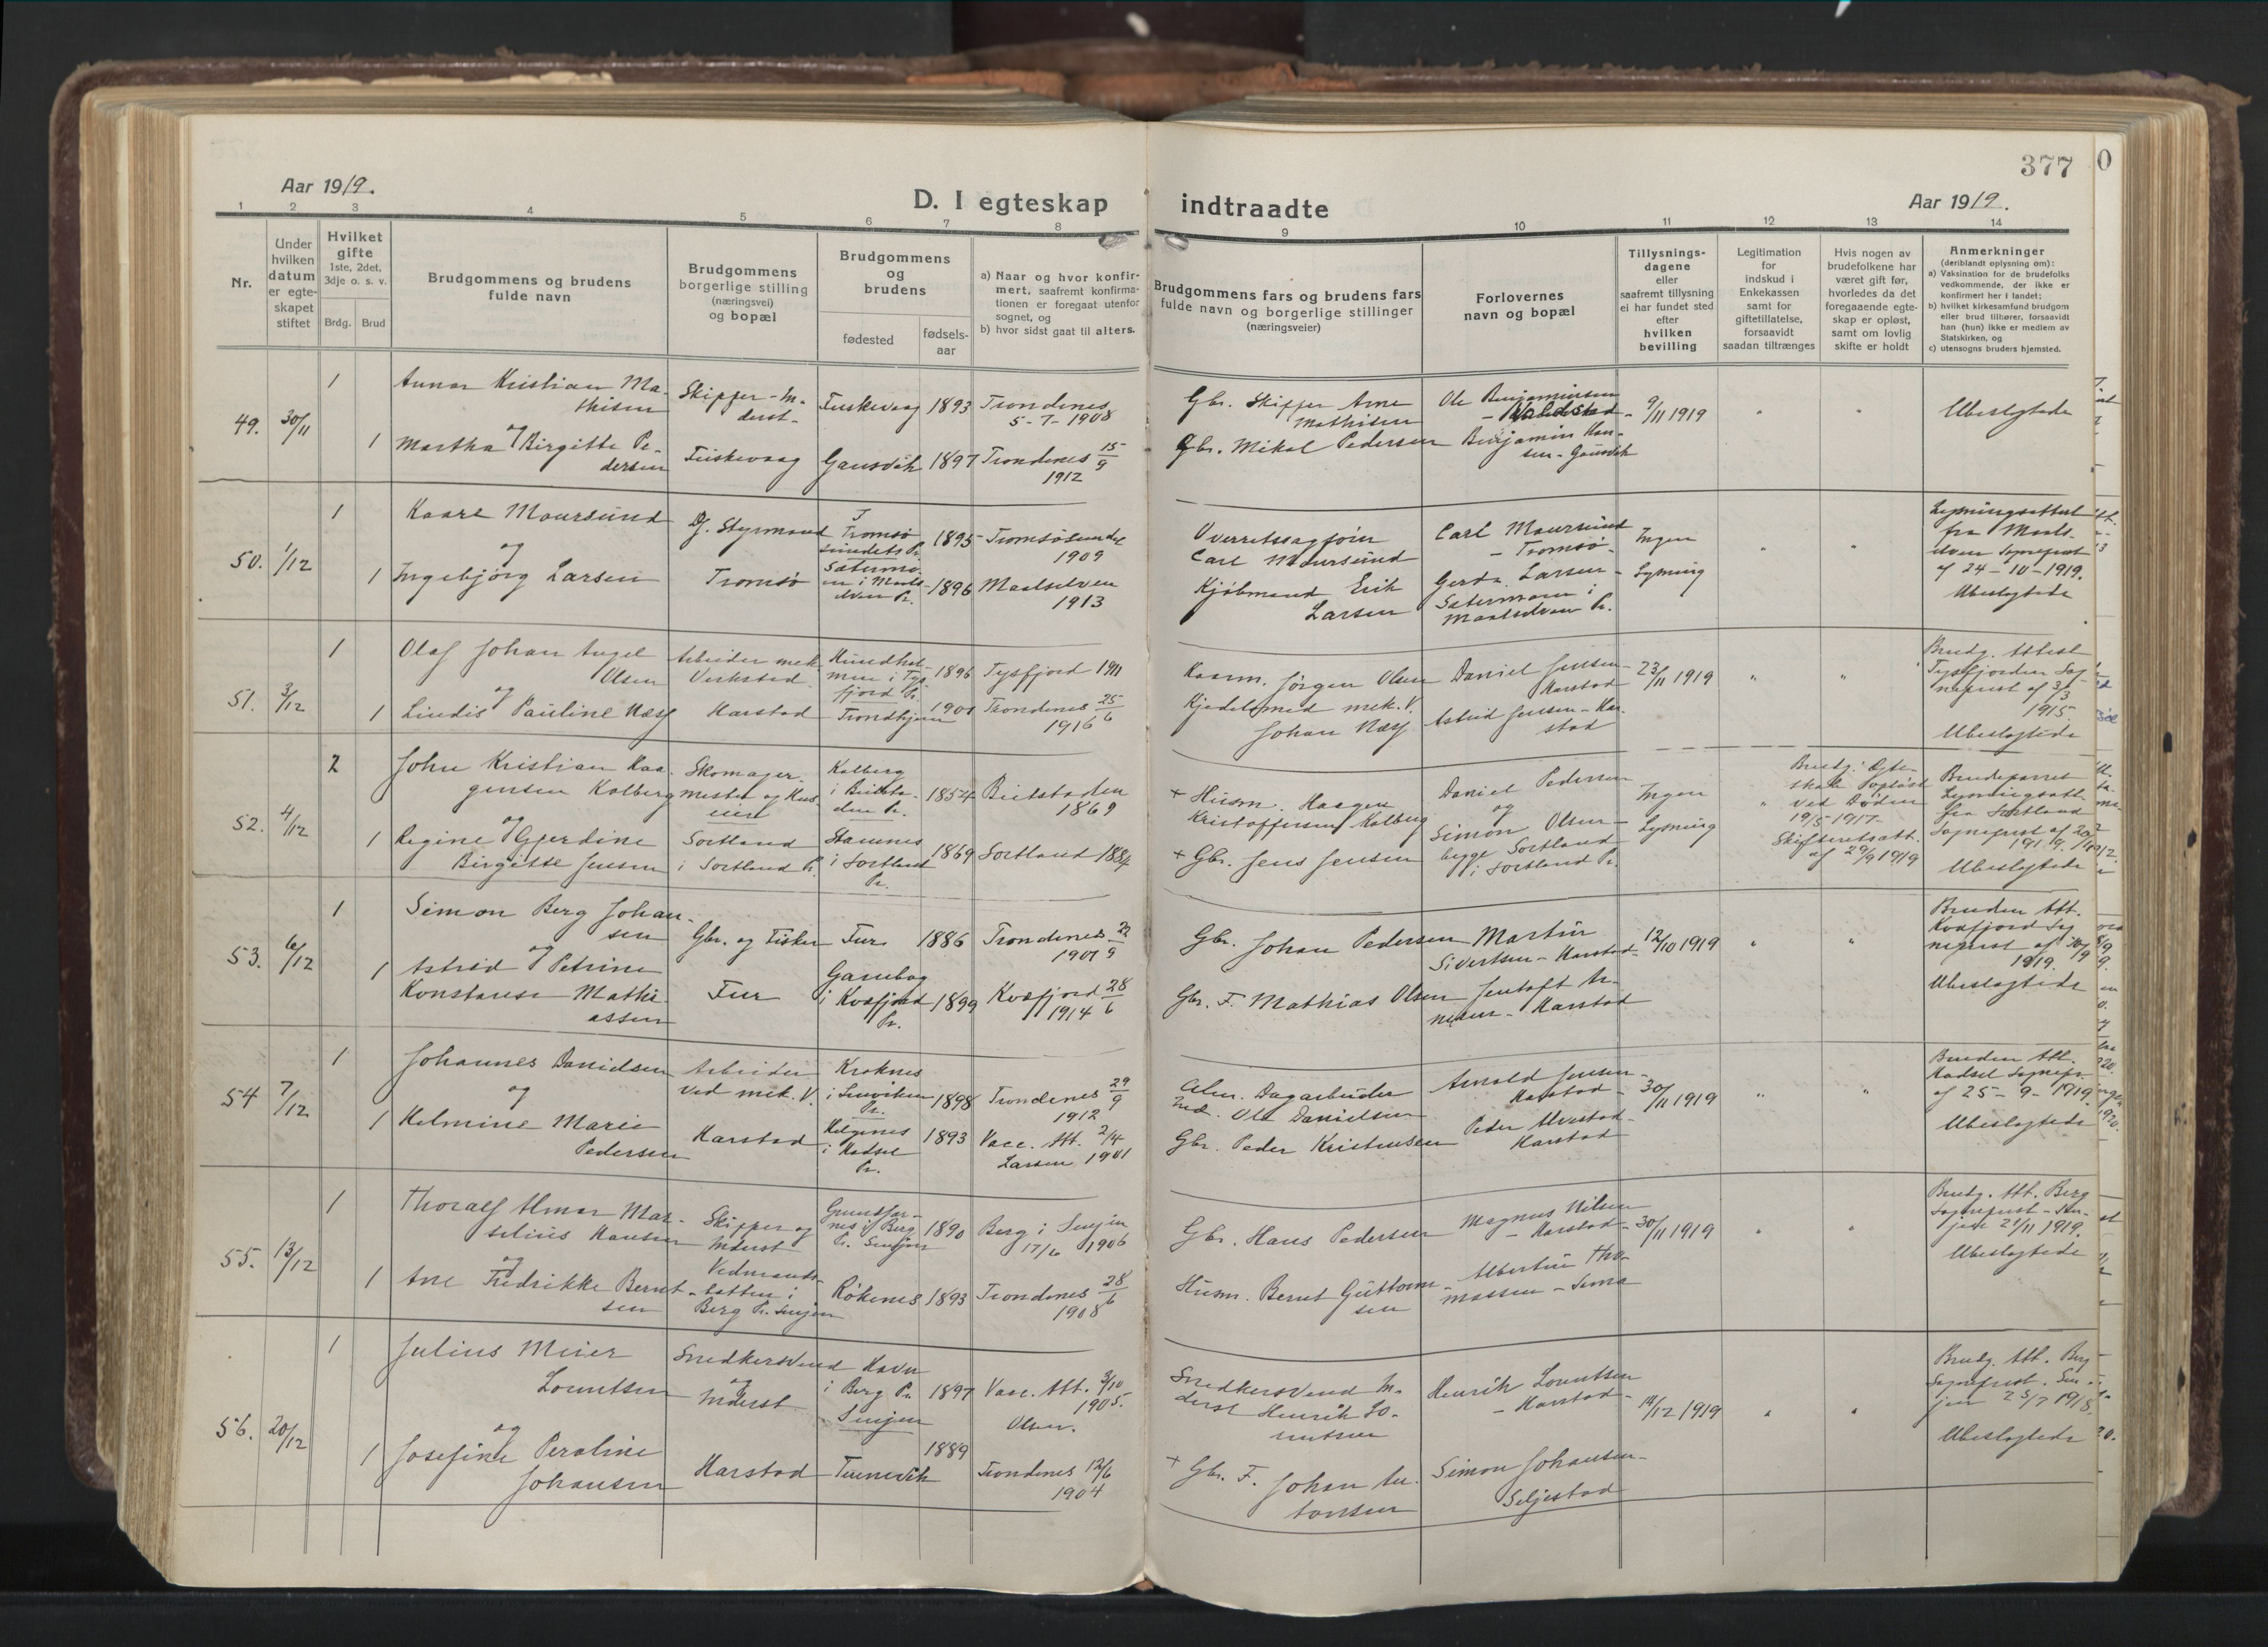 377
Aar 1919.
D. I egteskap indtraadte
Aar 1919.
1 2 3 4 5 6 7 8 9 10 11 12 13 14
Nr.
Under hvilken datum er egteskapet stiftet
Hvilket gifte
1ste, 2det, 3dje o. s. v.
Brdg. Brud
Brudgommens og brudens fulde navn
Brudgommens borgerlige stilling (næringsvei) og bopæl
Brudgommens og brudens
fødested
fødsels-aar
a) Naar og hvor konfirmert, saafremt konfirmationen er foregaat utenfor sognet, og
b) hvor sidst gaat til alters.
Brudgommens fars og brudens fars fulde navn og borgerlige stillinger (næringsveier)
Forlovernes navn og bopæl
Tillysningsdagene eller saafremt tillysning ei har fundet sted efter hvilken bevilling
Legitimation for indskud i Enkekassen samt for giftetillatelse, forsaavidt saadan tiltrænges
Hvis nogen av brudefolkene har været gift før, hvorledes da det foregaaende egteskap er opløst, samt om lovlig skifte er holdt
Anmerkninger
(deriblandt oplysning om):
a) Vaksination for de brudefolks vedkommende, der ikke er konfirmert her i landet;
b) hvilket kirkesamfund brudgom eller brud tilhører, forsaavidt han (hun) ikke er medlem av Statskirken, og
c) utensogns bruders hjemsted.
49. 30/11
1 Annar Kristian Mathisen
og
1 Martha Birgitte Pedersen
Skipper - Inderst -
Fuskevaag
Fuskevaag 1893 Trondenes 5-7-1908
Gausvik 1897 Trondenes 15/9 1912
Gbr. Skipper Arne Mathisen
Gbr. Mikal Pedersen
Ole Benjaminsen
Benjamin Hansen - Gausvik
9/11 1919
Ubeslegtede
50. 1/12
1 Kaare Moursund
og
1 Ingebjørg Larsen
Styrmand
Tromsø
Tromsøsundets Pr. 1895 Tromsøsundet 1909
Sætermoen i Maalselven Pr. 1896 Maalselven 1913
Overretssagfører Carl Moursund
Kjøbmand Erik Larsen
Carl Moursund - Tromsø
Gerda Larsen - Sætermoen i Maalselven Pr.
Ingen Lysning
Lysningsattest fra Maalselven Sogneprest af 24-10-1919.
Ubeslegtede
51. 3/12
1 Olaf Johan Angel Olsen
og
1 Lindis Pauline Næss
Arbeider mek. Verksted
Harstad
Hundholmen i Tysfjord Pr. 1896 Tysfjord 1911
Trondhjem 1901 Trondenes 25/6 1916
Kaarm. Jørgen Olsen
Kjedelsmed mek. V. Johan Næss
Daniel Jensen - Harstad
Astrid Jensen - Harstad
23/11 1919
Brudg. Attest Tysfjorden Sogneprest af 3/3 1915.
Ubeslegtede
52. 4/12
2 John Kristian Haagensen Kolberg
og
1 Regine Gjerdine Birgitte Jensen
Skomagermester og Huseier
Sortland i Sortland Pr.
Kolberg i Beitstaden Pr. 1854 Beitstaden 1869
Stamnes i Sortland Pr. 1869 Sortland 1884
+ Husm. Haagen Kristoffersen Kolberg
+ Gbr. Jens Jensen
Daniel Pedersen og Simon Olsen - begge Sortland i Sortland Pr.
Ingen Lysning
Brudg. Egteskab opløst ved Døden 19/5 1917 - Skifteretsatt. af 29/9 1919
Brudeparret Lysningsatt. fra Sortland Sogneprest af 20/11 1919.
Ubeslegtede
53. 6/12
1 Simon Berg Johansen
og
1 Astrid Petrine Konstanse Mathiassen
Gbr. og Fisker
Fur
Fur 1886 Trondenes 22/9 1901
Gansbog i Kvæfjord Pr. 1899 Kvæfjord 28/6 1914
Gbr. Johan Pedersen
Gbr. F. Mathias Olsen
Martin Sivertsen - Harstad
Harstad
12/10 1919
Bruden Att. Kvæfjord Sogneprest af 30/9 1919.
Ubeslegtede
54 7/12
1 Johannes Danielsen
og
1 Helmine Marie Pedersen
Arbeider ved mek. V.
Harstad
Kroknes i Lenviken Pr. 1898 Trondenes 29/9 1912
Helgenes i Hadsel Pr. 1893 Vacc. Att. 2/4 1901 Larsen
Dagarbeider Ole Danielsen
Gbr. Peder Kristensen
Arnold Jensen - Harstad
Peder Alvestad - Harstad
30/11 1919
Bruden Att. Hadsel Sognepr. af 25-9-1919.
Ubeslegtede
55. 13/12
1 Thoralf Almar Marselius Hansen
og
1 Ane Fredrikke Berntsen
Skipper og Inderst
Berg Pr. Senjen
Berg Pr. Senjen 1890 Berg i Senjen 17/6 1906
Røkenes 1893 Trondenes 28/6 1908
Gbr. Hans Pedersen
Husm. Bernt Guttormsen
Magnus Nilsen - Harstad
Albertin Thomassen - Sama
30/11 1919
Brudg. Att. Berg Sogneprest - Senjen 21/11 1919.
Ubeslegtede
56. 20/12
1 Julius Meier Lorentsen
og
1 Josefine Peroline Johansen
Snedkersvend og Inderst
Harstad
Havn i Berg Pr. Senjen 1897 Vacc. Att. 3/10 1905. Olsen.
1889 Trondenes 12/6 1904
Snedkersvend Inderst Henrik Lorentsen
+ Gbr. F. Johan Antonsen
Henrik Lorentsen - Harstad
Simon Johansen - Seljestad
14/12 1919
Brudg. Att. Berg Sogneprest. Senjen 25/7 1918.
Ubeslegtede